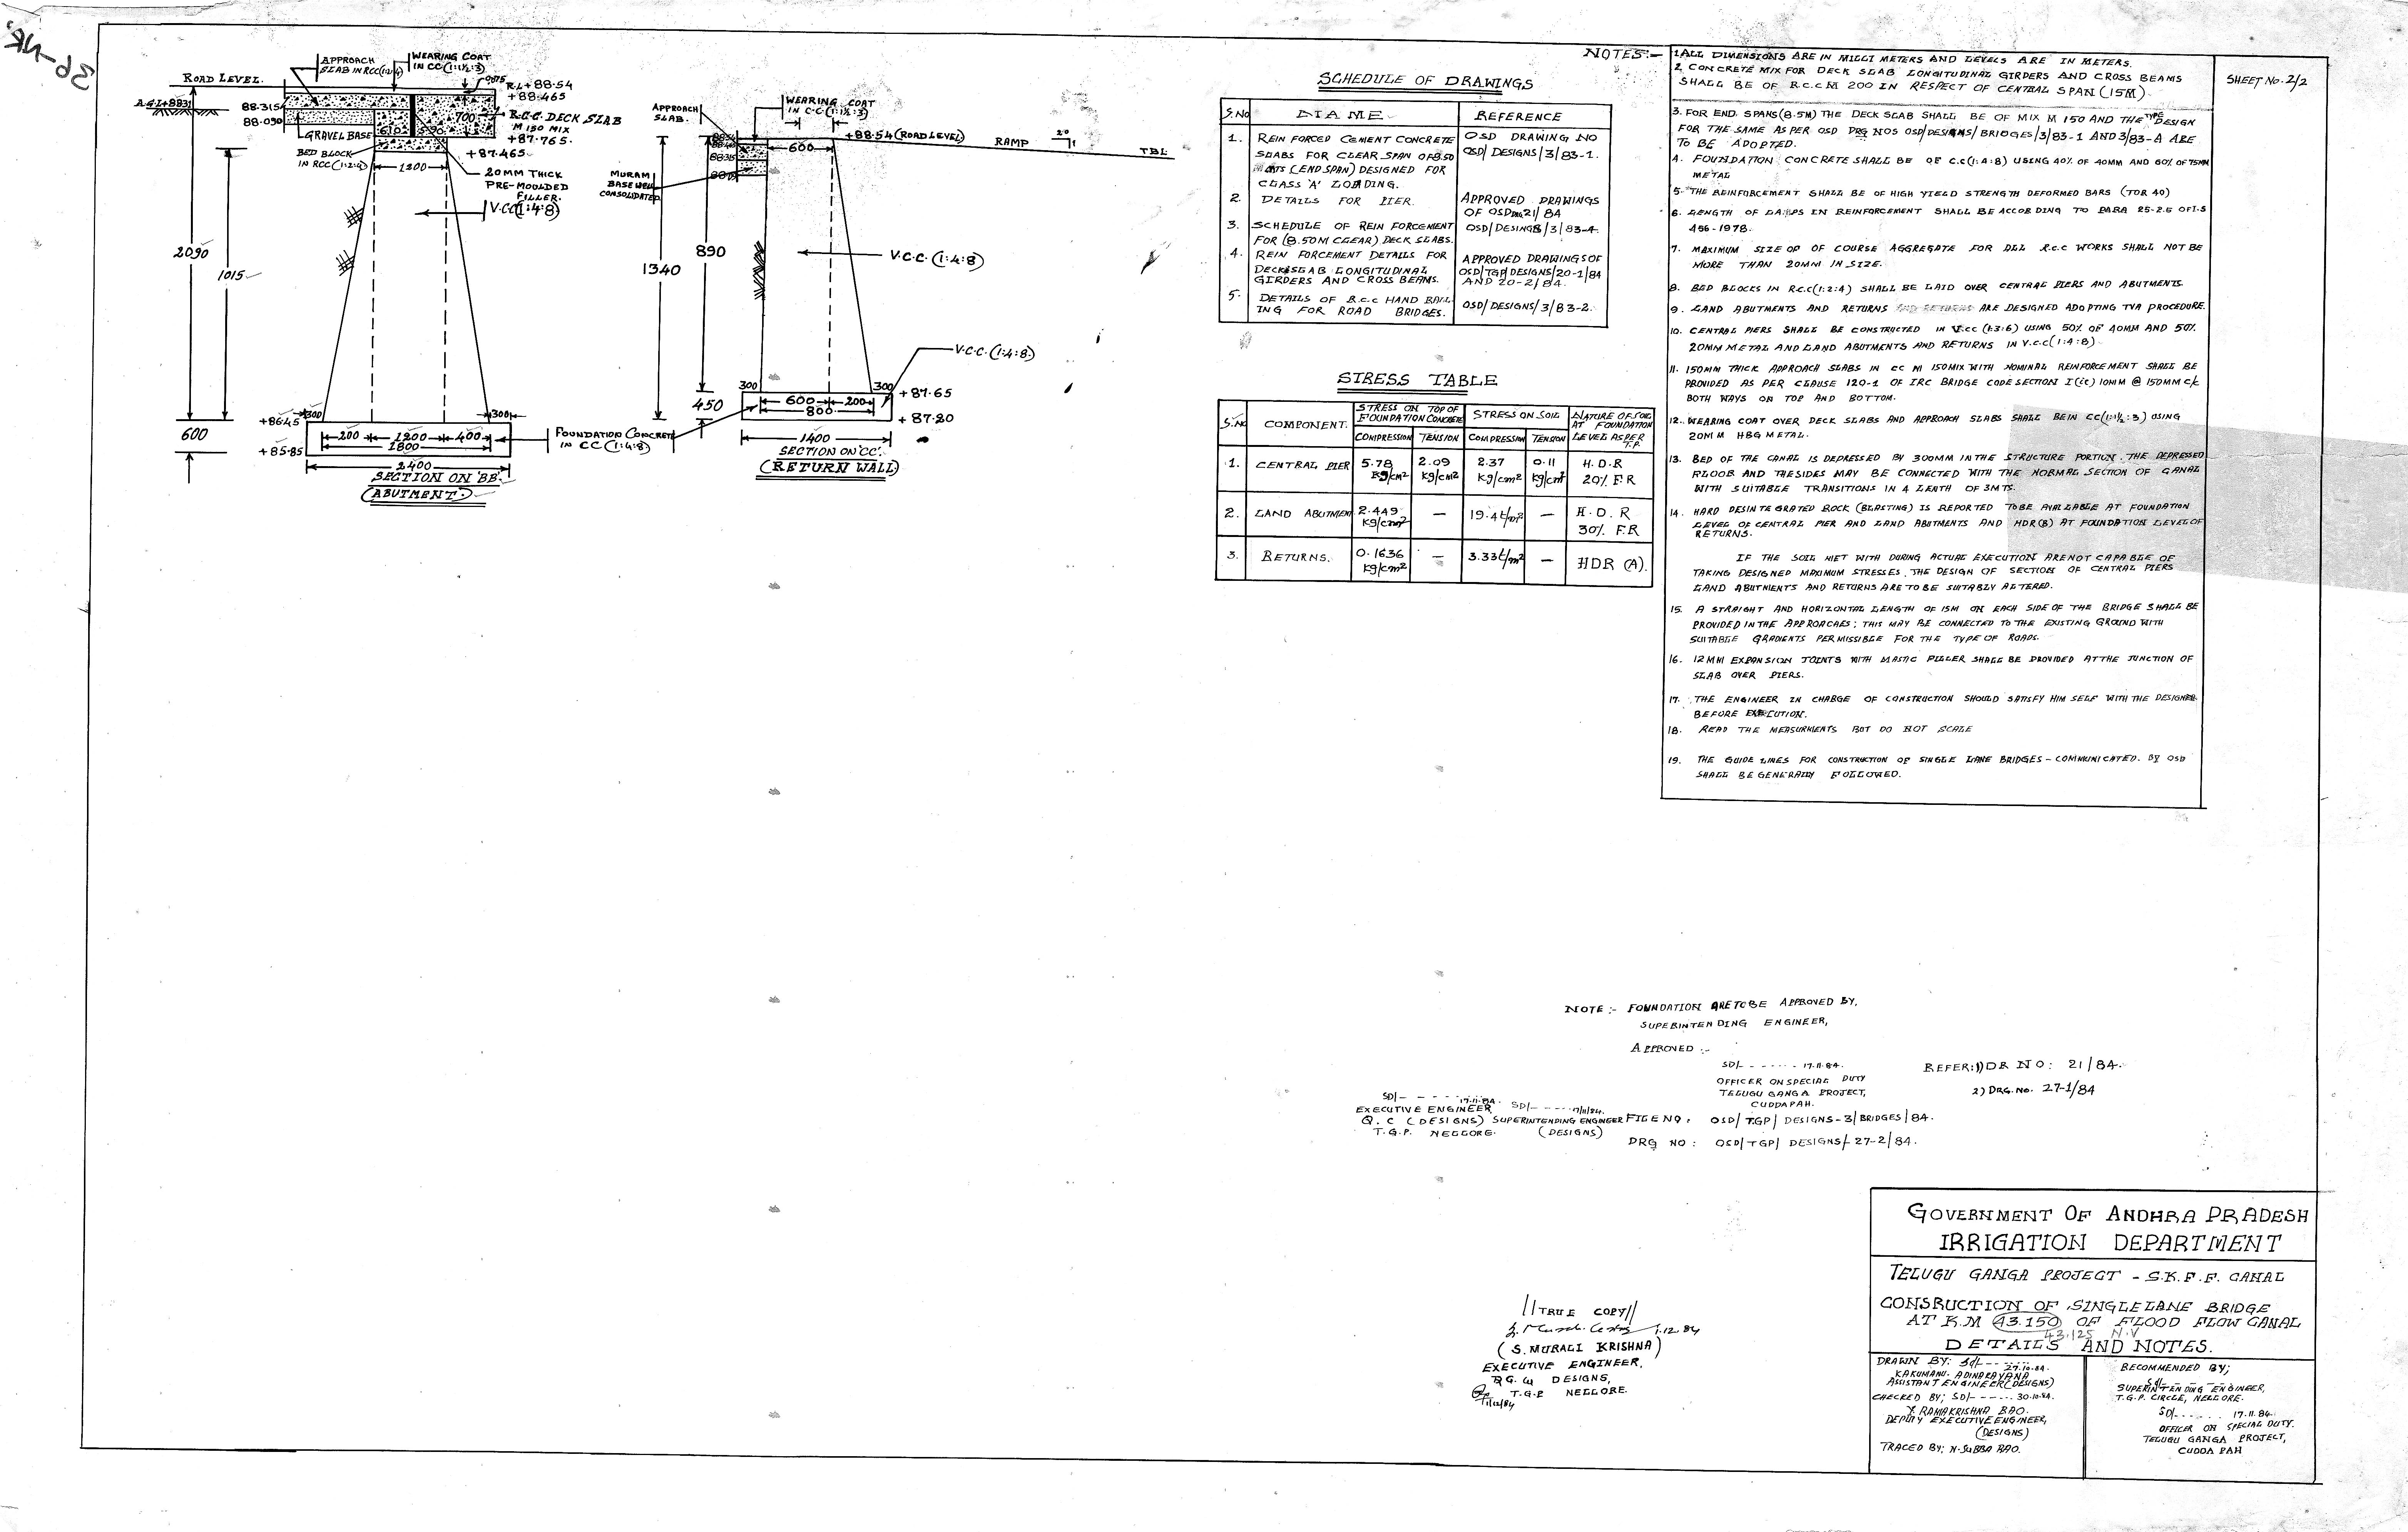 SHEET No. 2/2
ROAD LEVEL.
APPROACH
SLAB IN RCC(1:2:4)
WEARING COAT
IN CC(1:1½:3)
0075
R.L+88.54
+88.465
A.G.L+8831
88.315
88.090
GRAVEL BASE
610
590
700
R.C.C. DECK SLAB
M 150 MIX
+87.765.
+87.465
BED BLOCK
IN RCC(1:2:4)
1200
20MM THICK
PRE-MOULDED
FILLER.
V.C.C(1:4:8)
2090
1015
600
+86.45
+85.85
300
300
200
1200
400
1800
2400
SECTION ON 'BB'
(ABUTMENT.)
FOUNDATION CONCRETE
IN CC(1:4:8)
APPROACH
SLAB.
WEARING COAT
IN C.C.(1:1½:3)
600
+88.54(ROAD LEVEL)
RAMP
20
1
TBL
MURAM
BASE WELL
CONSOLIDATED
890
1340
450
V.C.C.(1:4:8)
V.C.C.(1:4:8)
300
300
+87.65
+87.20
600
200
800
1400
SECTION ON 'CC'.
(RETURN WALL)
SCHEDULE OF DRAWINGS
S.No
DIAME
REFERENCE
1. REIN FORCED CEMENT CONCRETE
SLABS FOR CLEAR SPAN OF 8.50
MTS (END SPAN) DESIGNED FOR
CLASS 'A' LOADING.
OSD DRAWING NO
OSD/DESIGNS/3/83-1.
2. DETAILS FOR PIER.
APPROVED DRAWINGS
OF OSD DRG 21/84
3. SCHEDULE OF REIN FORCEMENT
FOR (8.50M CLEAR) DECK SLABS.
OSD/DESINGS/3/83-4.
4. REIN FORCEMENT DETAILS FOR
DECK SLAB LONGITUDINAL
GIRDERS AND CROSS BEAMS.
APPROVED DRAWINGS OF
OSD/TGP/DESIGNS/20-1/84
AND 20-2/84.
5. DETAILS OF R.C.C HAND RAIL
ING FOR ROAD BRIDGES.
OSD/DESIGNS/3/83-2.
STRESS TABLE
S.No
COMPONENT.
STRESS ON TOP OF
FOUNDATION CONCRETE
STRESS ON SOIL
NATURE OF SOIL
AT FOUNDATION
LEVEL AS PER
T.P.
COMPRESSION TENSION COMPRESSION TENSION
1. CENTRAL PIER 5.78 kg/cm² 2.09 kg/cm² 2.37 kg/cm² 0.11 kg/cm² H.D.R 20% F.R
2. LAND ABUTMENT 2.449 kg/cm² — 19.4t/m² — H.D.R 30% F.R
3. RETURNS. 0.1636 kg/cm² — 3.33t/m² — HDR (A).
NOTES:-
1. ALL DIMENSIONS ARE IN MILLI METERS AND LEVELS ARE IN METERS.
2. CONCRETE MIX FOR DECK SLAB LONGITUDINAL GIRDERS AND CROSS BEAMS
SHALL BE OF R.C.C M 200 IN RESPECT OF CENTRAL SPAN (15M).
3. FOR END. SPANS (8.5M) THE DECK SLAB SHALL BE OF MIX M 150 AND THE TYPE DESIGN
FOR THE SAME AS PER OSD DRG NOS OSD/DESIGNS/BRIDGES/3/83-1 AND 3/83-A ARE
TO BE ADOPTED.
4. FOUNDATION CONCRETE SHALL BE OF C.C(1:4:8) USING 40% OF 40MM AND 60% OF 75MM
METAL
5. THE REINFORCEMENT SHALL BE OF HIGH YIELD STRENGTH DEFORMED BARS (TOR 40)
6. LENGTH OF LAPPS IN REINFORCEMENT SHALL BE ACCORDING TO PARA 25-2.5 OF I.S
456-1978.
7. MAXIMUM SIZE OP OF COURSE AGGREGATE FOR ALL R.C.C WORKS SHALL NOT BE
MORE THAN 20MM IN SIZE.
8. BED BLOCKS IN R.C.C(1:2:4) SHALL BE LAID OVER CENTRAL PIERS AND ABUTMENTS.
9. LAND ABUTMENTS AND RETURNS ARE DESIGNED ADOPTING TVA PROCEDURE.
10. CENTRAL PIERS SHALL BE CONSTRUCTED IN V.CC (1:3:6) USING 50% OF 40MM AND 50%
20MM METAL AND LAND ABUTMENTS AND RETURNS IN V.C.C(1:4:8)
11. 150MM THICK APPROACH SLABS IN CC M 150MIX WITH NOMINAL REINFORCEMENT SHALL BE
PROVIDED AS PER CLAUSE 120-1 OF IRC BRIDGE CODE SECTION I (ii) 10MM @ 150MM c/c
BOTH WAYS ON TOP AND BOTTOM.
12. WEARING COAT OVER DECK SLABS AND APPROACH SLABS SHALL BE IN CC(1:1½:3) USING
20MM HBG METAL.
13. BED OF THE CANAL IS DEPRESSED BY 300MM IN THE STRUCTURE PORTION. THE DEPRESSED
FLOOR AND THE SIDES MAY BE CONNECTED WITH THE NORMAL SECTION OF CANAL
WITH SUITABLE TRANSITIONS IN A LENTH OF 3MTS.
14. HARD DESINTE GRATED ROCK (BLASTING) IS REPORTED TO BE AVAILABLE AT FOUNDATION
LEVEL OF CENTRAL PIER AND LAND ABUTMENTS AND HDR(B) AT FOUNDATION LEVEL OF
RETURNS.
IF THE SOIL MET WITH DURING ACTUAL EXECUTION ARE NOT CAPABLE OF
TAKING DESIGNED MAXIMUM STRESSES, THE DESIGN OF SECTION OF CENTRAL PIERS
LAND ABUTMENTS AND RETURNS ARE TO BE SUITABLY ALTERED.
15. A STRAIGHT AND HORIZONTAL LENGTH OF 15M ON EACH SIDE OF THE BRIDGE SHALL BE
PROVIDED IN THE APPROACHES; THIS MAY BE CONNECTED TO THE EXISTING GROUND WITH
SUITABLE GRADIENTS PERMISSIBLE FOR THE TYPE OF ROADS.
16. 12MM EXPANSION JOINTS WITH MASTIC FILLER SHALL BE PROVIDED AT THE JUNCTION OF
SLAB OVER PIERS.
17. THE ENGINEER IN CHARGE OF CONSTRUCTION SHOULD SATISFY HIM SELF WITH THE DESIGNER
BEFORE EXECUTION.
18. READ THE MEASURMENTS BUT DO NOT SCALE
19. THE GUIDE LINES FOR CONSTRUCTION OF SINGLE LANE BRIDGES - COMMUNICATED. BY OSD
SHALL BE GENERALLY FOLLOWED.
NOTE:- FOUNDATION ARE TO BE APPROVED BY,
SUPERINTENDING ENGINEER,
APPROVED:-
SD/- - - - - - 17.11.84.
OFFICER ON SPECIAL DUTY
TELUGU GANGA PROJECT,
CUDDAPAH.
REFER:1) DR NO: 21/84.
2) DRG.No. 27-1/84
SD/- - - - - 17.11.84.
EXECUTIVE ENGINEER
Q.C (DESIGNS)
T.G.P. NELLORE.
SD/- - - - 17/11/84.
SUPERINTENDING ENGINEER
(DESIGNS)
FILE NO: OSD/T.GP/DESIGNS-3/BRIDGES/84.
DRG NO: OSD/TGP/DESIGNS/-27-2/84.
//TRUE COPY//
1.12.84
(S. MURALI KRISHNA)
EXECUTIVE ENGINEER,
DESIGNS,
T.G.P NELLORE.
1/12/84
GOVERNMENT OF ANDHRA PRADESH
IRRIGATION DEPARTMENT
TELUGU GANGA PROJECT - S.K.F.F. CANAL
CONSRUCTION OF SINGLE LANE BRIDGE
AT K.M 43.150 OF FLOOD FLOW CANAL
43.125 N.V
DETAILS AND NOTES.
DRAWN BY: Sd/- - - 27.10.84.
KAKUMANU. ADINARAYANA
ASSISTANT ENGINEER(DESIGNS)
CHECKED BY; SD/- - - - 30.10.84.
Y. RAMAKRISHNA RAO.
DEPUTY EXECUTIVE ENGINEER,
(DESIGNS)
TRACED BY; N. SUBBA RAO.
RECOMMENDED BY;
Sd/- - - -
SUPERINTENDING ENGINEER,
T.G.P. CIRCLE, NELLORE.
SD/- . . . . 17.11.84.
OFFICER ON SPECIAL DUTY.
TELUGU GANGA PROJECT,
CUDDA PAH